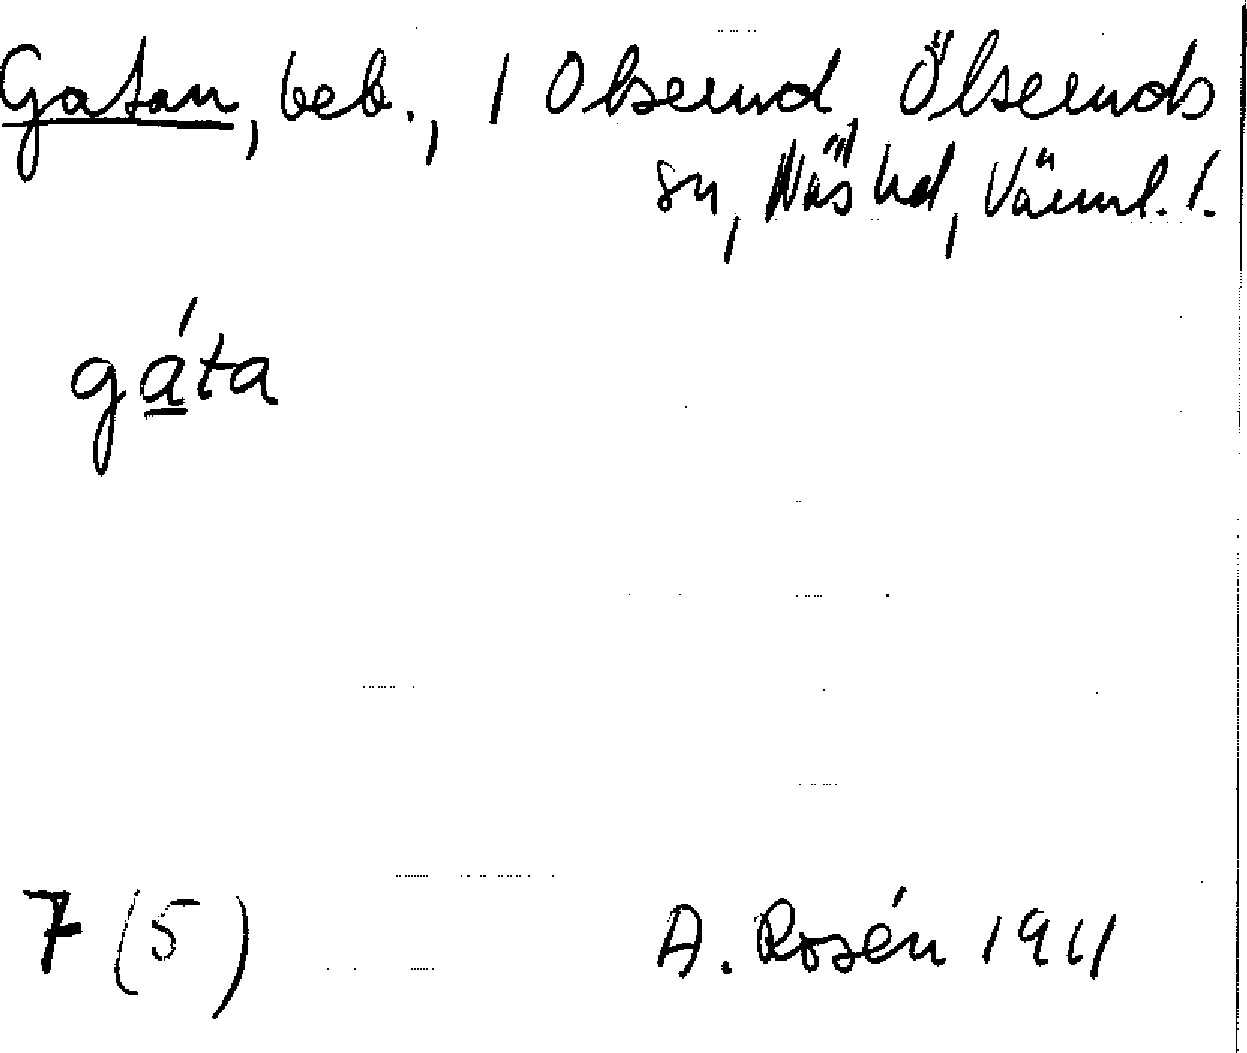 Gatan, beb., i Ölserud, Ölseruds
sn, Näs hd, Värml. l.
gáta
7 (5)
A. Rosén 1911